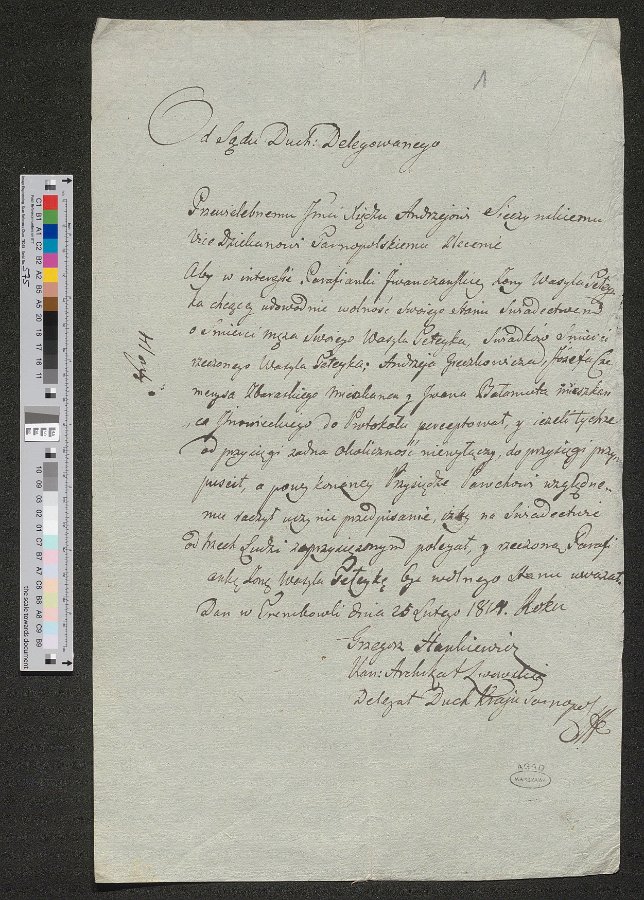 1
Od Sądu Duch: Delegowanego
Przewielebnemu Jmci Xiędzu Andrzejowi Sieczyńskiemu
Vice Dziekanowi Tarnopolskiemu Zlecenie
Aby w interesie Parafianki Iwanczanskiey Żony Wasyla Petey
ka chcącey udowodnić wolność swoiego stanu Swiadectwem
o śmierci męża swoiego Wasyla Peteyka, Swiadkow śmierci
rzeczonego Wasyla Peteyka; Andrzeja Hreczkowicza, Jozefa Cze
merysa Zbarazkiego Mieszkanca y Iwana Bałamuta mieszkań
ca do Protokołu perceptował, y ieżeli tychże
od przysięgi żadna okoliczność niewyłączy, do przysięgi przy
puścił, a po wykonaney Przysiędze Parochowi względne
mu raczył uczynić przedpisanie, ażeby na Swiadectwie
od trzech Ludzi zaprzysiężonym polegał, y rzeczoną Parafi
ankę Żonę Wasyla Peteykę bydź wolnego Stanu uważał.
Dan w Trembowli dnia 25 Lutego 1814. Roku
Grzegorz Stankiewicz
Kan: Archikat Lwowskiej
Delegat Duch Kraju Tarnopol
AGAD
WARSZAWA